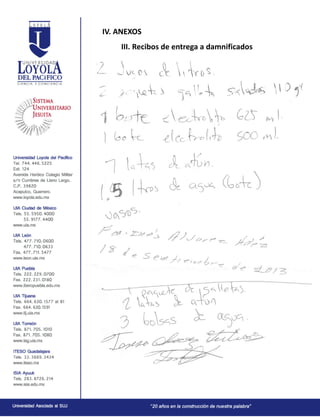 UNIVERSIDAD
LOYOLA
DEL PACÍFICO
CIENCIA Y CONCIENCIA
SISTEMA
UNIVERSITARIO
JESUITA
Universidad Loyola del Pacífico
Tel. 744. 446. 5225
Ext. 124
Avenida Heróico Colegio Militar
s/n Cumbres de Llano Largo.
C.P. 39820
Acapulco, Guerrero.
www.loyola.edu.mx
UIA Ciudad de México
Tels. 55. 5950. 4000
55. 9177. 4400
www.uia.mx
UIA León
Tels. 477. 710. 0600
477. 710. 0633
Fax. 477. 711. 5477
www.leon.uia.mx
UIA Puebla
Tels. 222. 229. 0700
Fax. 222. 231. 0180
www.iberopuebla.edu.mx
UIA Tijuana
Tels. 664. 630. 1577 al 81
Fax. 664. 630. 1591
www.tij.uia.mx
UIA Torreón
Tels. 871. 705. 1010
Fax. 871. 705. 1080
www.lag.uia.mx
ITESO Guadalajara
Tels. 33. 3669. 3434
www.iteso.mx
ISIA Ayuuk
Tels. 283. 8726. 214
www.isia.edu.mx
IV. ANEXOS
III. Recibos de entrega a damnificados
2 Jugos de litros.
galleta saladas 113 gr
1 bote electrolito 625 ml.
1 bote electrolito 500 ml.
1 latas de atún.
1.5 litros de agua (bote)
vasos.
18 de septiembre de 2013
1 paquete de galletas.
2 latas de atún
3 bolsas de agua.
Universidad Asociada al SUJ
"20 años en la construcción de nuestra palabra"